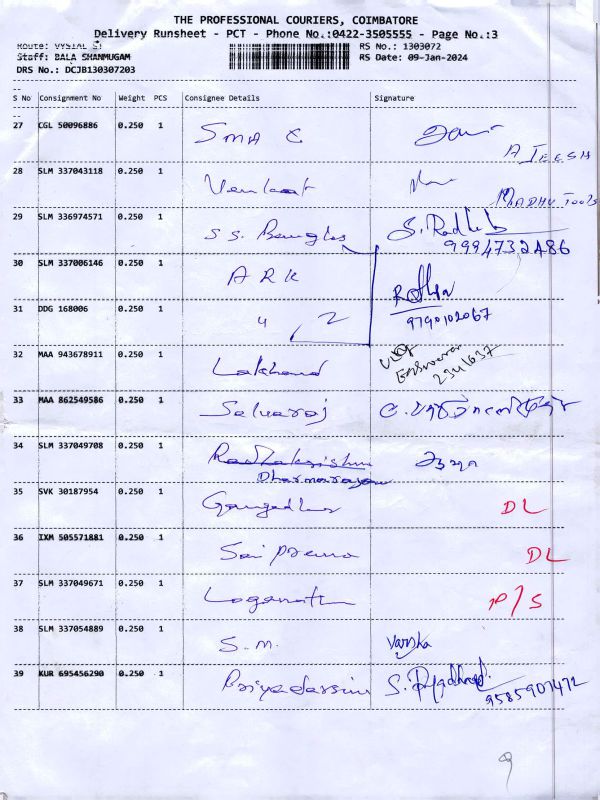 THE PROFESSIONAL COURIERS, COIMBATORE
Delivery Runsheet - PCT - Phone No.:0422-3505555 - Page No.:3
Route: VYSIAL S
Staff: BALA SHANMUGAM
DRS No.: DCJB130307203
RS No.: 1303072
RS Date: 09-Jan-2024
S No Consignment No Weight PCS Consignee Details Signature
27 CGL 50096886 0.250 1 SMA C
AJEESH
28 SLM 337043118 0.250 1 Venkat
MADHU Tools
29 SLM 336974571 0.250 1 S S. Bangles S. Radha
9994732486
30 SLM 337006146 0.250 1 ARK
31 DDG 168006 0.250 1 " 2
9790102067
32 MAA 943678911 0.250 1 Lakhand
Easwaran
2341637
33 MAA 862549586 0.250 1 Selvaraj
34 SLM 337049708 0.250 1 Radhakrishn
Dharmarajan
35 SVK 30187954 0.250 1 Gangadhar DL
36 IXM 505571881 0.250 1 Sai Prema DL
37 SLM 337049671 0.250 1 Loganathan P/S
38 SLM 337054889 0.250 1 S.M. Varsha
39 KUR 695456290 0.250 1 Priyadarsini
9585907472
9